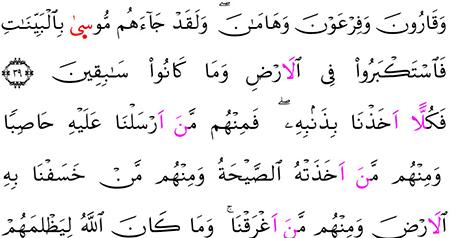 وَقَارُونَ وَفِرْعَوْنَ وَهَامَانَۖ وَلَقَدْ جَآءَهُم مُّوسۭىٰ بِالْبَيِّنَاتِ
فَاَسْتَكْبَرُوا۟ فِى اِ۬لَارْضِ وَمَا كَانُوا۟ سَابِقِينَ ٣٩
فَكُلّاً اَخَذْنَا بِذَنۢبِهِۦۖ فَمِنْهُم مَّنَ اَرْسَلْنَا عَلَيْهِ حَاصِبًا
وَمِنْهُم مَّنَ اَخَذَتْهُ اُ۬لصَّيْحَةُ وَمِنْهُم مَّنْ خَسَفْنَا بِهِ
اِ۬لَارْضَ وَمِنْهُم مَّنَ اَغْرَقْنَاۚ وَمَا كَانَ اَ۬للَّهُ لِيَظْلِمَهُمْ